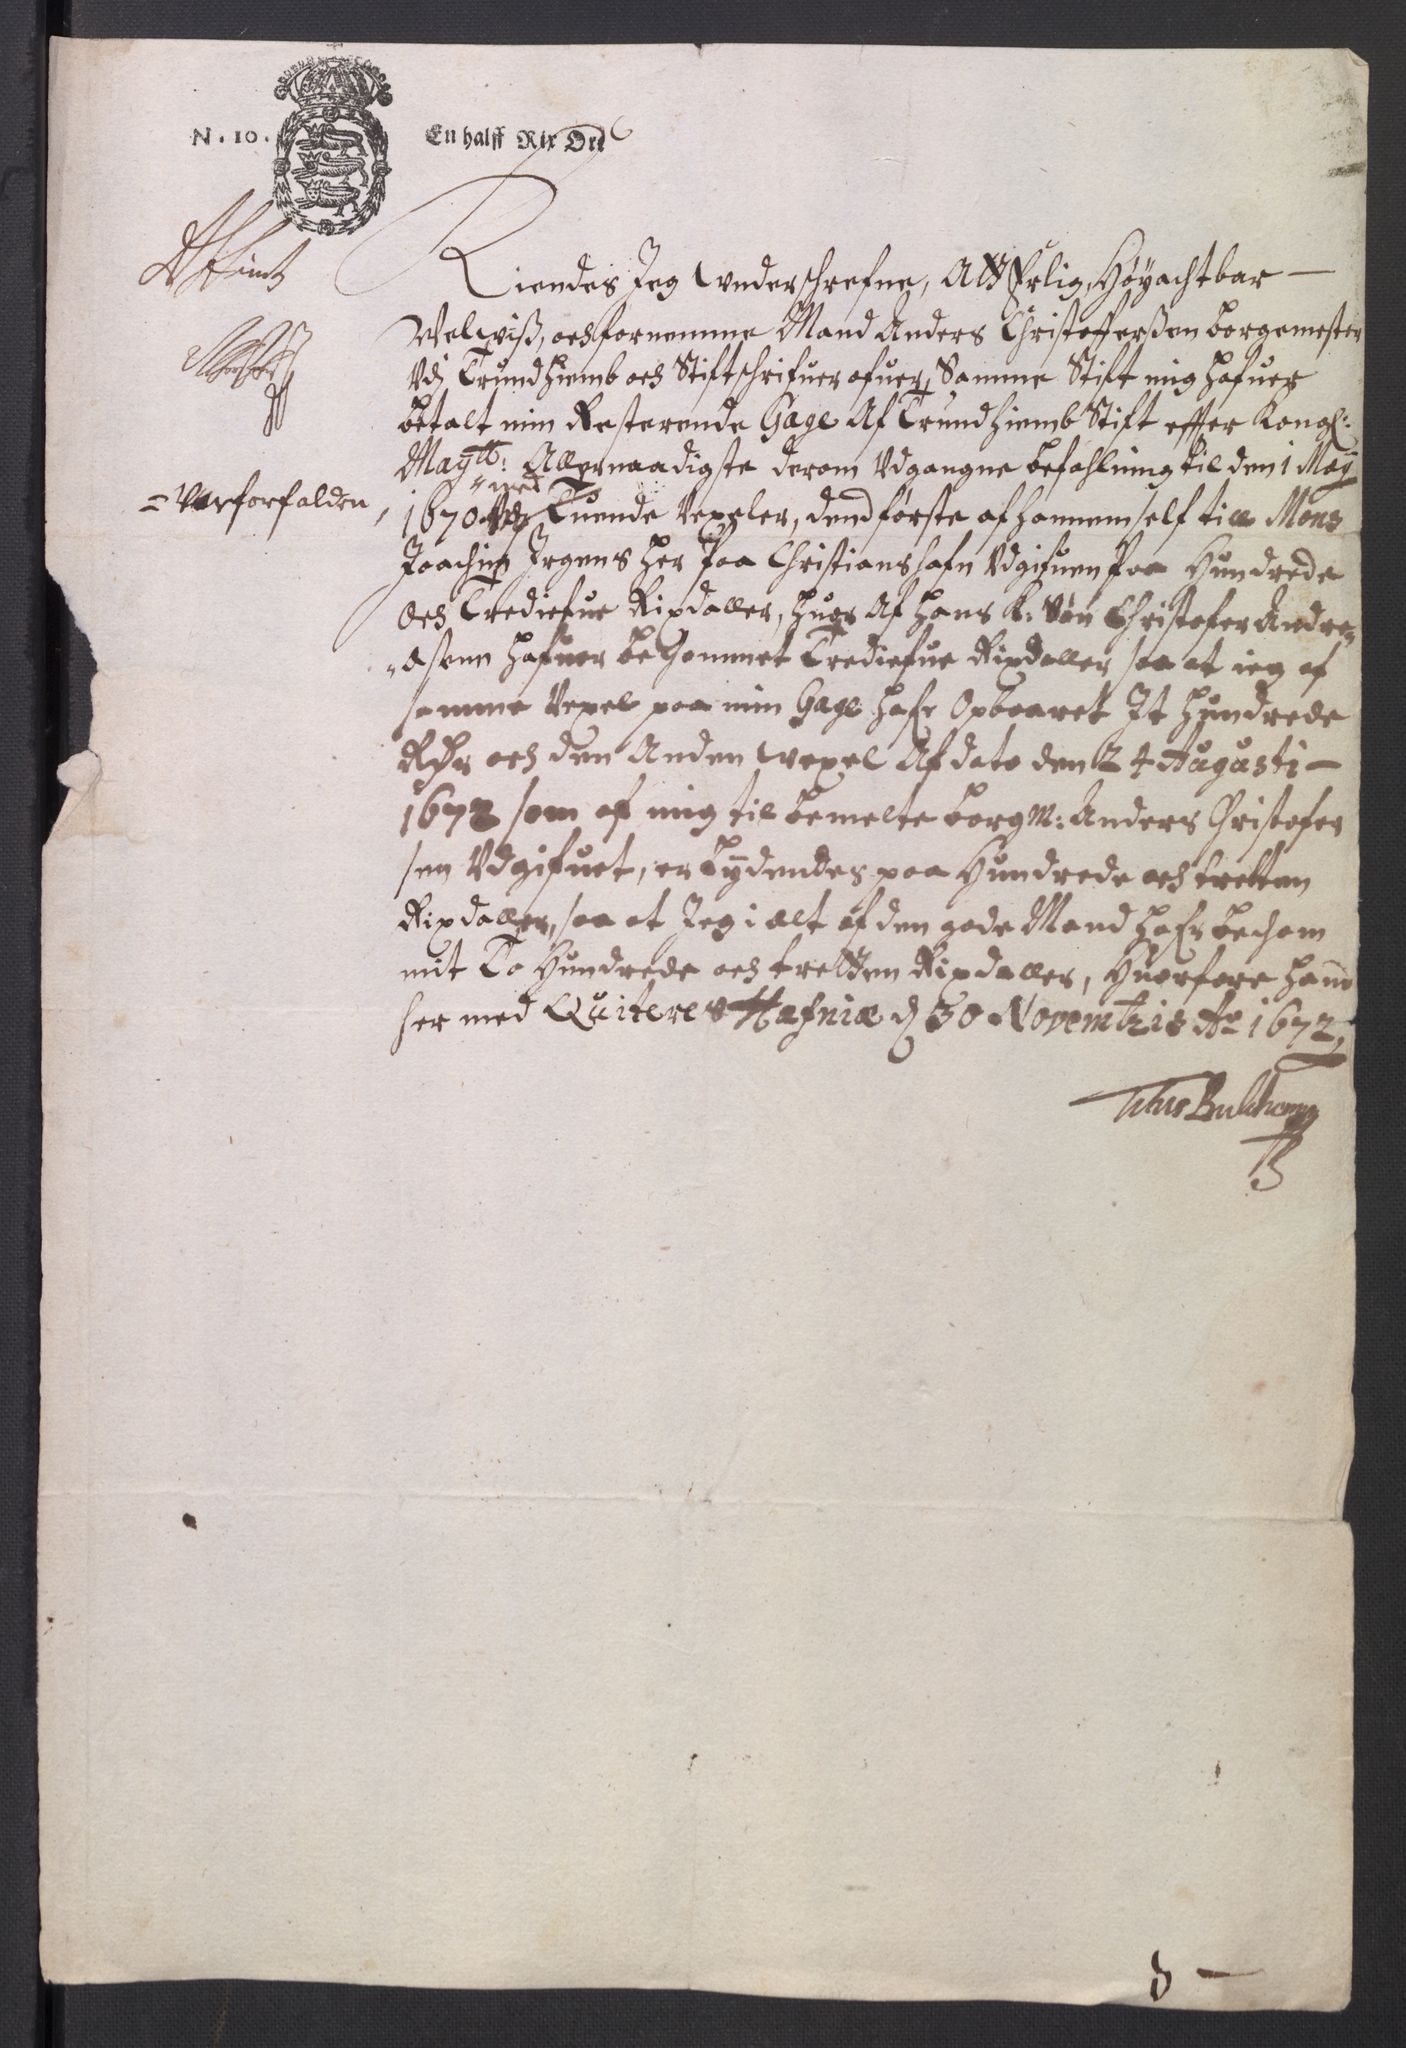 N. 10. En halff Rix Ort
Kiendes Jeg Underschrefne, Att Erlig, Høyachtbar
Welwiß, och fornemme Mand Anders Christofferßen borgemester
Vdj Trundhiemb och Stiftschrifuer ofuer, Samme Stift mig hafuer
betalt min Resterende Gage Af Trundhiemb Stift effter Kongl:
Maytt: Allernaadigste derom Vdgangne befahlning til den 1 May
= Var forfalden, 1670 med Tuende Vexeler, dend første af hannem self till Mons
Joachim Irgens her paa Christianshafn Vdgifuen paa Hundrede
och Trediefue Rixdaller, huor Af hans K: Søn Christofer Andre
asenn hafuer bekommet Trediefue Rixdaller saa at ieg af
samme Vexel paa min Gage hafr Opbaaret It hundrede
Rdr och den Anden wexel Af dato den 24 Augusti
1672 som af mig til bemelte borgm: Anders Christofer
sen Vdgifuet, er lydendes paa Hundrede och tretten
Rixdaller, saa at Jeg i alt af den gode Mand hafr becham
mit To Hundrede och tretten Rixdaller, Huorfore hand
her med Quiteres Hafniæ d 30 Novembris Ao 1672,
Titus Bulche